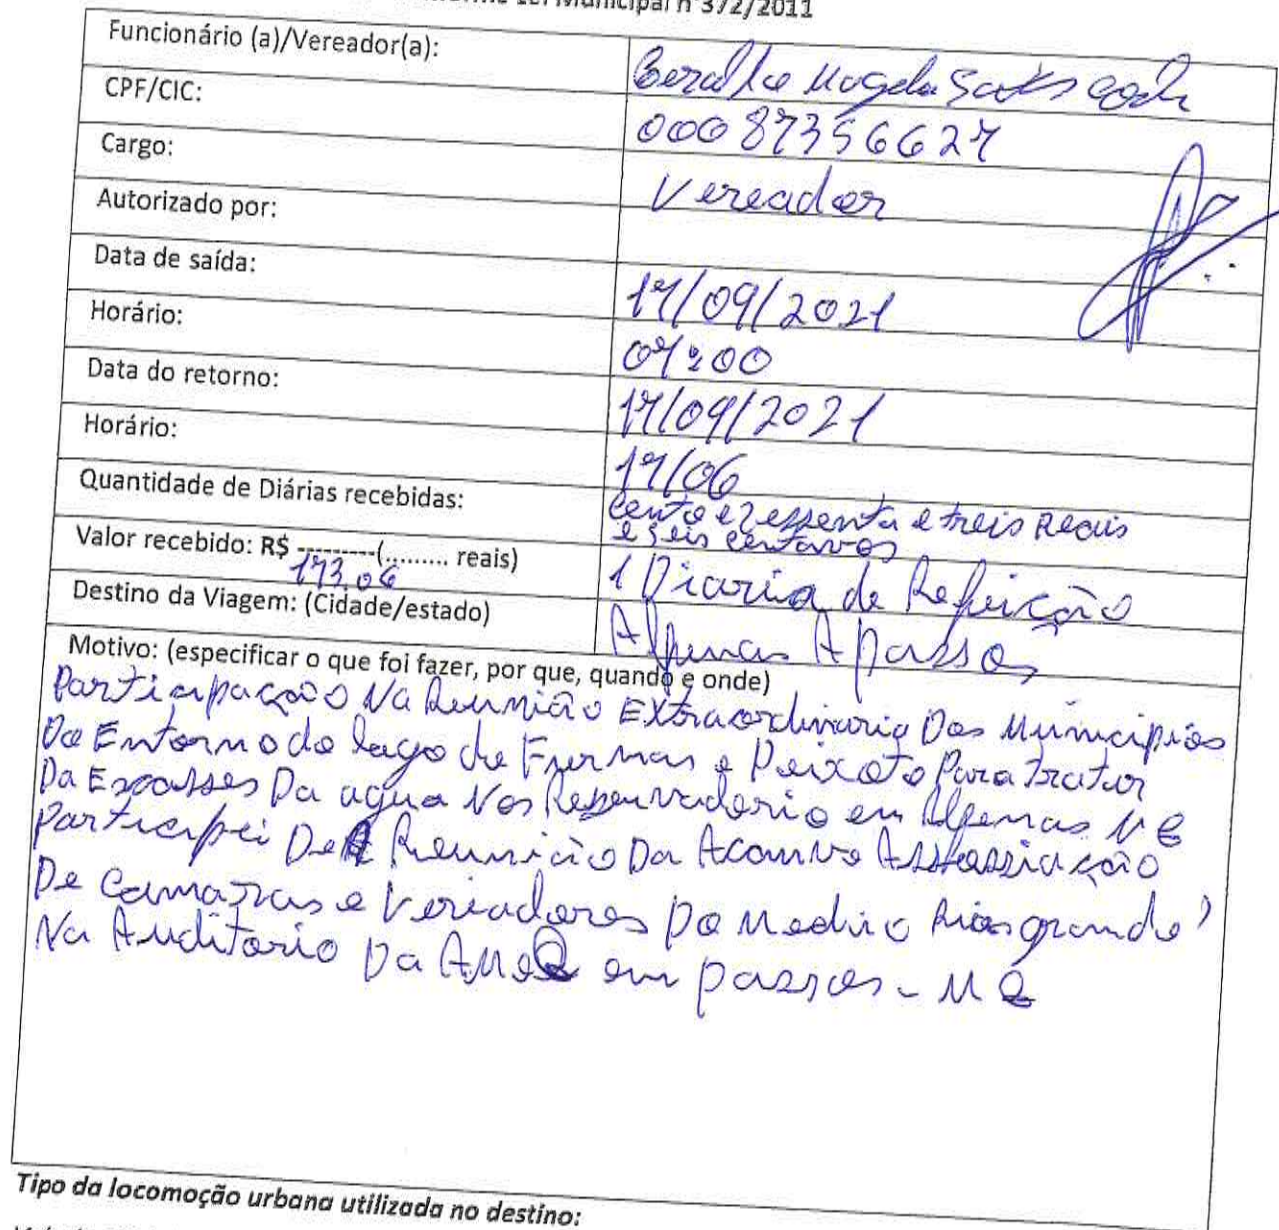 Lei Municipal nº372/2011
Funcionário (a)/Vereador(a): Geraldo Magela
CPF/CIC: 00087356627
Cargo: Vereador
Autorizado por:
Data de saída: 17/09/2021
Horário: 07:00
Data do retorno: 17/09/2021
Horário: 17/06
Quantidade de Diárias recebidas: cento e sessenta e treis Reais
e seis centavos
Valor recebido: R$ ---------(......... reais) 1 Diaria de Refeição
173,06
Destino da Viagem: (Cidade/estado) Alfenas A passos
Motivo: (especificar o que foi fazer, por que, quando e onde)
Participação Na Reunião Extraordinaria Dos Municipios
Do Entorno do lago de Furnas e Peixoto Para tratar
Da Escasses Da agua Nos Reservadorio em Alfenas MG
Participei De Reunicio Da
De Camaras e Veriadores Do Medio Rio grande
Na Auditorio Da em passos - MG
Tipo da locomoção urbana utilizada no destino: